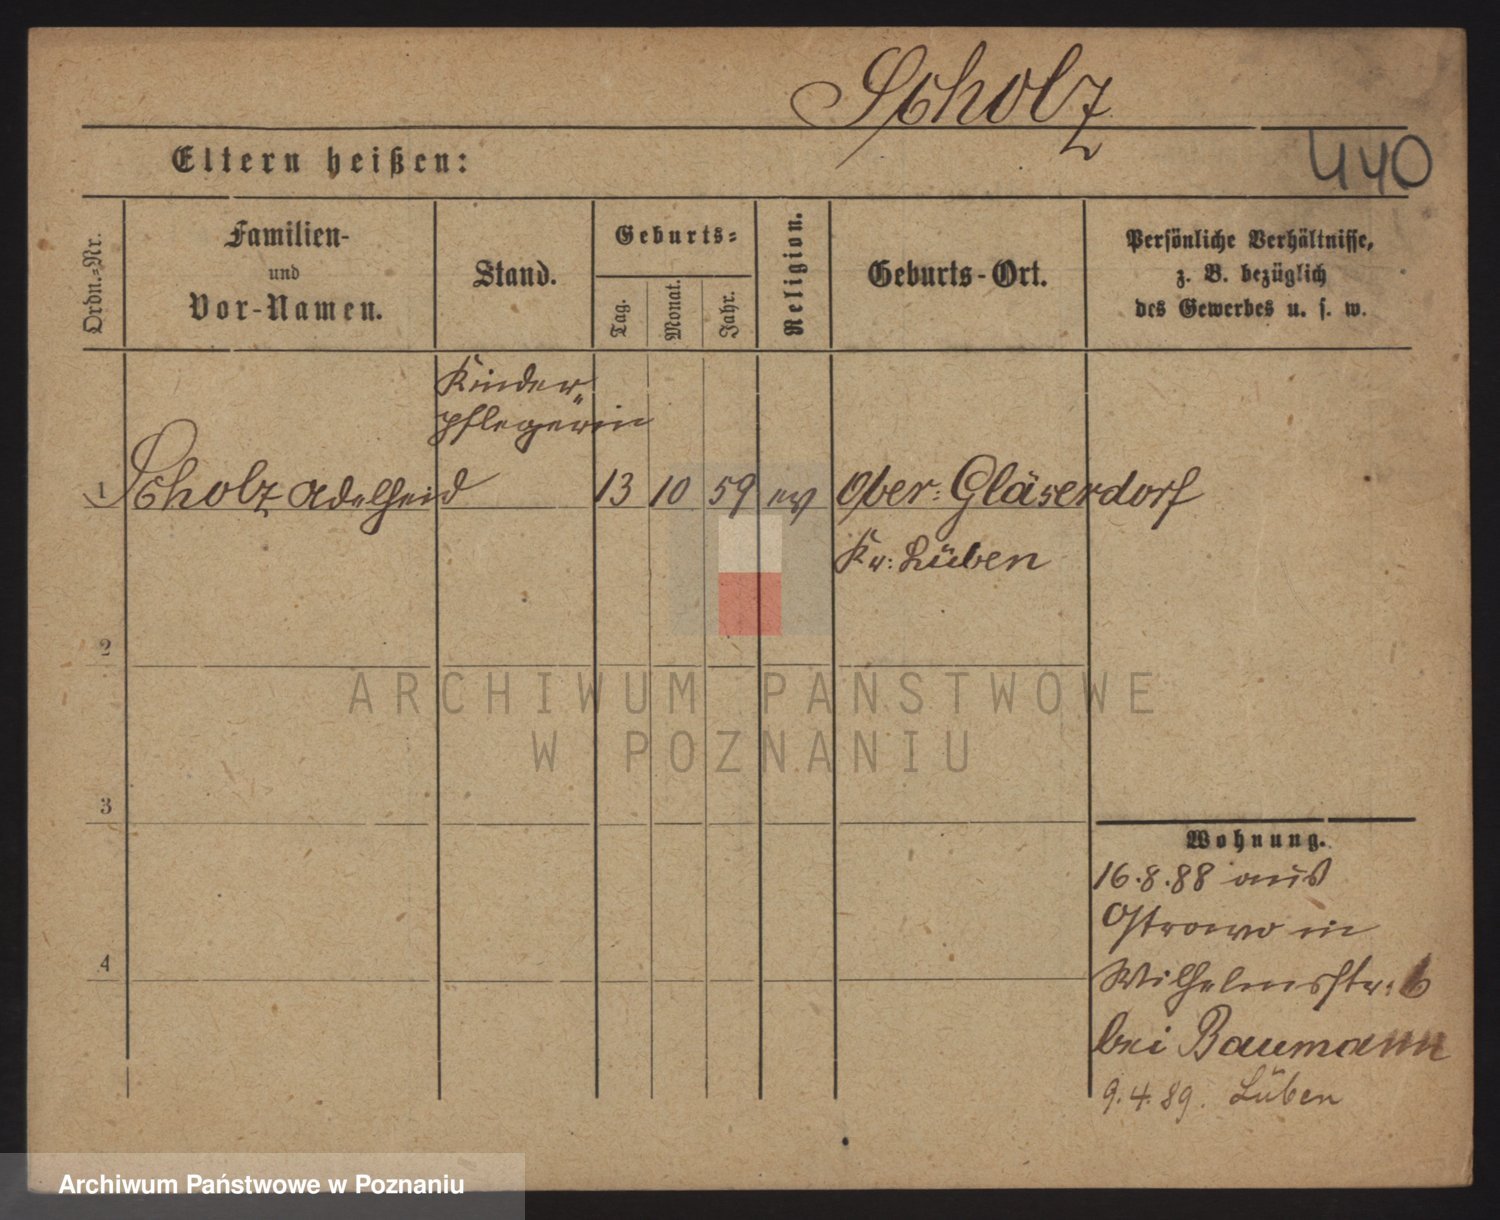 Scholz
440
Eltern heißen:
Ordn.-Nr.
Familien-
und
Vor-Namen.
Stand.
Geburts-
Tag.
Monat.
Jahr.
Religion.
Geburts-Ort.
Persönliche Verhältnisse,
z. B. bezüglich
des Gewerbes u. s. w.
Kinder-
pflegerin
1 Scholz Adelheid 13 10 59 ev Ober-Gläserdorf
Kr: Lüben
2
3
4
Wohnung.
16.8.88 aus
Ostrowo in
Wilhelmsstr: 6
bei Baumann
9.4.89. Lüben
ARCHIWUM PAŃSTWOWE
W POZNANIU
Archiwum Państwowe w Poznaniu